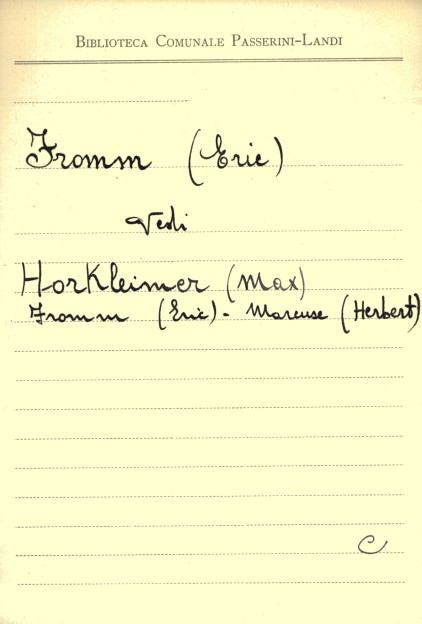 BIBLIOTECA COMUNALE PASSERINI-LANDI
Fromm (Eric)
Vedi
Horkleimer (Max)
Fromm (Eric) - Marcuse (Herbert)
C